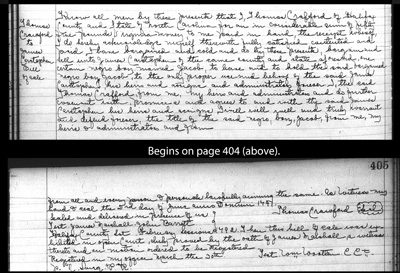 Thomas
Crawford
to
James
Carstaphen
Bill
of sale
Know all men by these presents that I, Thomas Crafford of Halifax
County and State of North Carolina for and in consideration sum of fifty
pounds Virginia money to me paid in hand the receipt whereof
I do hereby acknowledge myself therewith fully satisfied contented and
paid, I have bargained and sold and do by these presents bargain and
sell unto James Carstaphen of the same county and state aforesaid, one
certain negro boy named Jacob, to have and to hold the said bargained
negro boy Jacob to the only proper use and behoof of the said James
Carstaphen his heirs and assigns and administrators forever. I, the said
Thomas Crafford, from me, my heirs and administrators and do further
covenant with, promise and agree to and with the said James
Carstaphen his heirs and assigns I will well and truly warrant
and defend forever the title of the said negro boy, Jacob, from me, my
heirs or administrators and from
Begins on page 404 (above).
405
from all and every person & persons lawfully claiming the same. In witness my
hand & seal the 3rd day of June Anno Domini 1781
Sealed and delivered in presence of us
Thomas Crawford Seal
Test James Marshall, John Barrett
Halifax County Sct. February Session 1782. Then this bill of sale was ex-
hibited in open Court, duly proved by the oath of James Marshall, a witness
thereto and on motion ordered to be Registered.
Registered in my office March the 20th
Test Wm Wootten C. C.